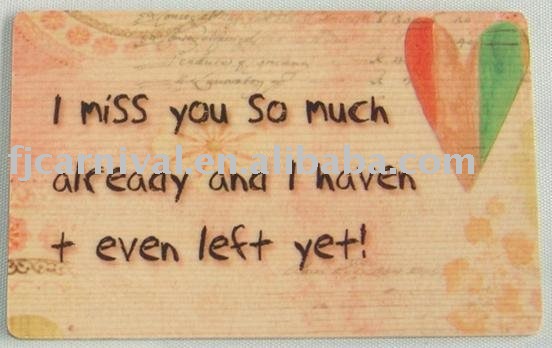 I miss you so much
fjcarnival.en.alibaba.com
already and I haven
t even left yet!